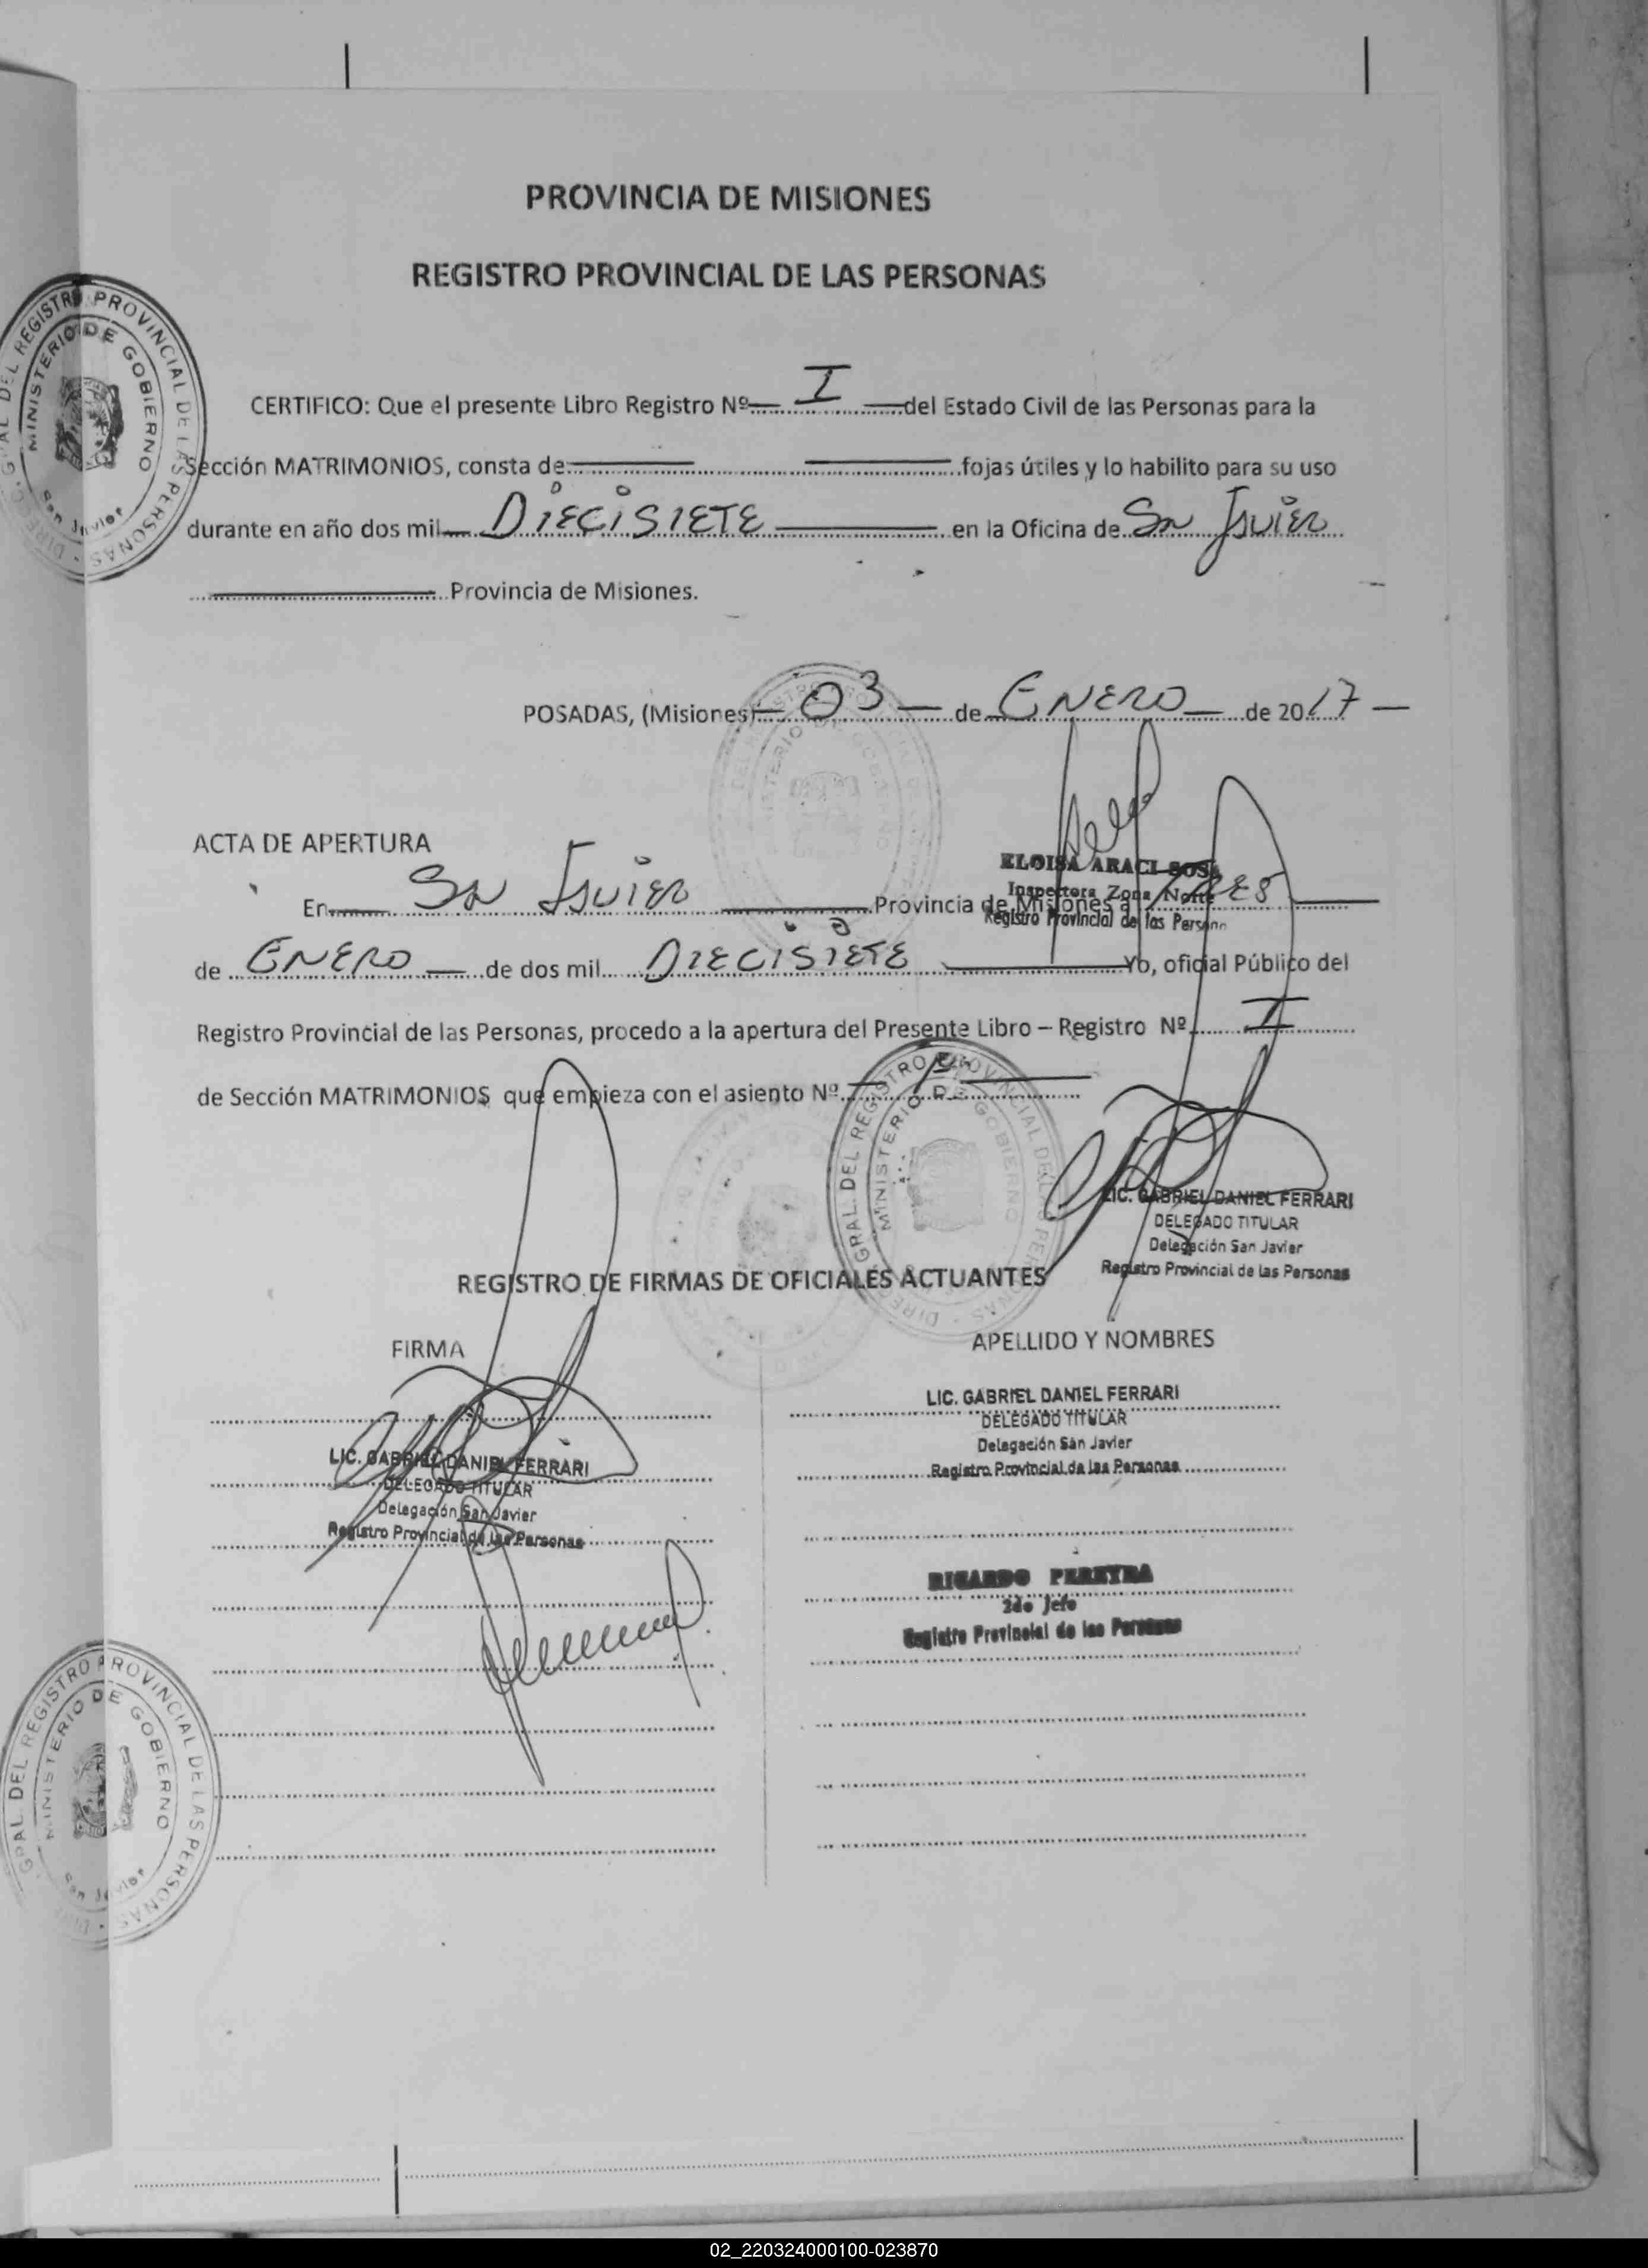 PROVINCIA DE MISIONES
REGISTRO PROVINCIAL DE LAS PERSONAS
CERTIFICO: Que el presente Libro Registro Nº I del Estado Civil de las Personas para la
Sección MATRIMONIOS, consta de fojas útiles y lo habilito para su uso
durante en año dos mil DIECISIETE en la Oficina de San Javier
Provincia de Misiones.
POSADAS, (Misiones) 03 de ENERO de 2017
ACTA DE APERTURA
ELOISA ARACI SOSA
Inspectora Zona Norte
Registro Provincial de las Person
En San Javier Provincia de Misiones a TRES
de ENERO de dos mil DIECISIETE Yo, oficial Público del
Registro Provincial de las Personas, procedo a la apertura del Presente Libro – Registro Nº I
de Sección MATRIMONIOS que empieza con el asiento Nº
LIC. GABRIEL DANIEL FERRARI
DELEGADO TITULAR
Delegación San Javier
Registro Provincial de las Personas
REGISTRO DE FIRMAS DE OFICIALES ACTUANTES
FIRMA
APELLIDO Y NOMBRES
LIC. GABRIEL DANIEL FERRARI
DELEGADO TITULAR
Delegación San Javier
Registro Provincial de las Personas
LIC. GABRIEL DANIEL FERRARI
DELEGADO TITULAR
Delegación San Javier
Registro Provincial de las Personas
RICARDO PEREYRA
2do Jefe
Registro Provincial de las Personas
GRAL. DEL REGISTRO PROVINCIAL DE LAS PERSONAS
MINISTERIO DE GOBIERNO
San Javier
02_220324000100-023870